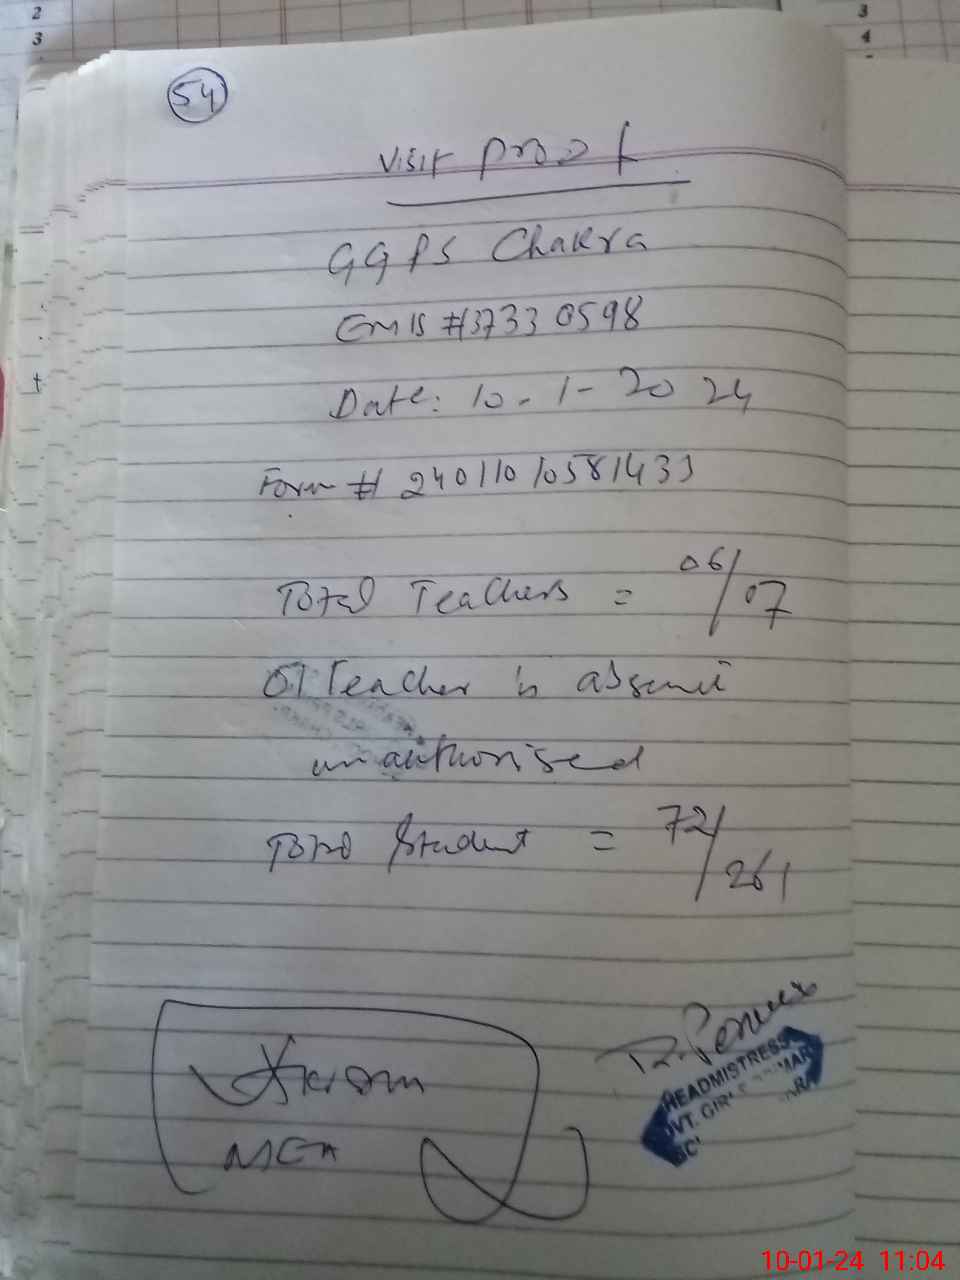 2
3
3
4
54
Visit Proof
GGPS Chakra
EMIS #37330598
Date: 10-1-2024
Form # 24011010581433
Total Teachers = 06/07
01 Teacher is absent
unauthorised
Total Student = 72/261
Akram
MEA
HEADMISTRESS
GOVT. GIR
10-01-24 11:04